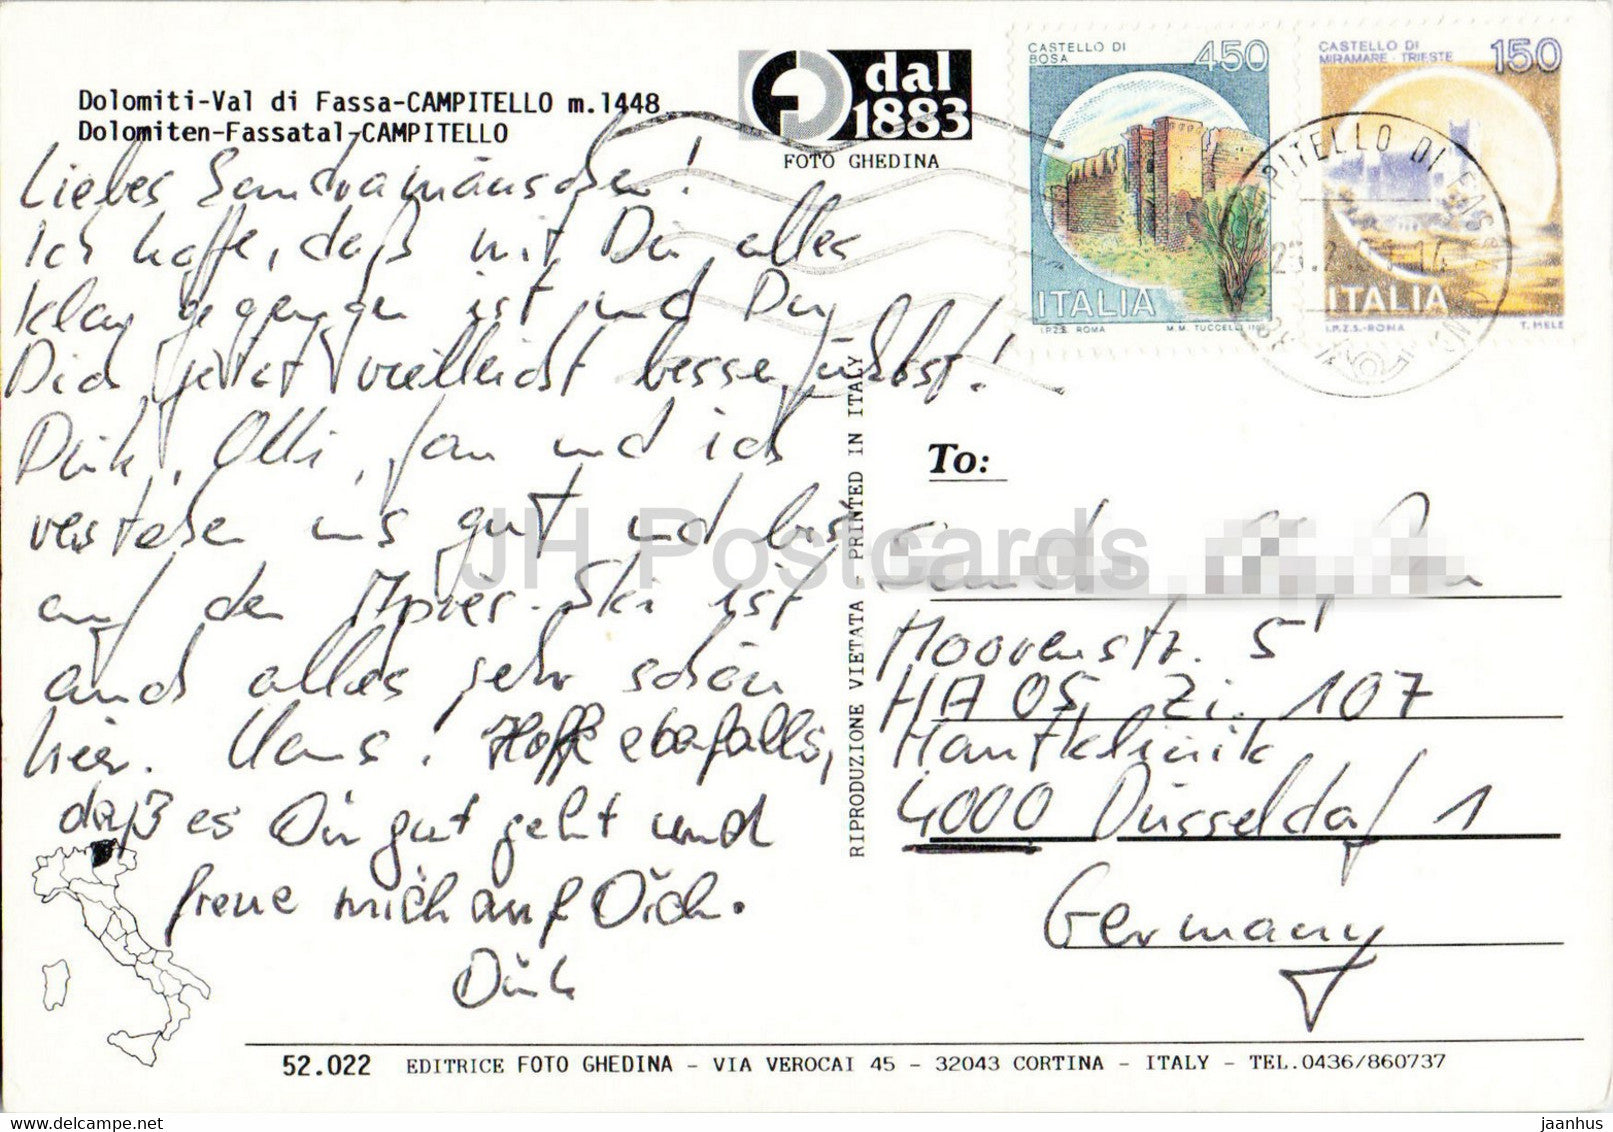 Dolomiti-Val di Fassa-CAMPITELLO m.1448
Dolomiten-Fassatal-CAMPITELLO
dal
1883
FOTO GHEDINA
CASTELLO DI
BOSA
450
ITALIA
I.P.Z.S. ROMA
CASTELLO DI
MIRAMARE - TRIESTE
150
ITALIA
I.P.Z.S.-ROMA
T. MELE
CAMPITELLO DI FASSA
Liebes Sandramäuschen!
Ich hoffe, daß mit Dir alles
klar gegangen ist und Du
Dich jetzt vielleicht besser fühlst!
Dirk, Olli, Jan und ich
verstehen uns gut und bis
auf den Apres-Ski ist
auch alles sehr schön
hier. Hoffe ebenfalls,
daß es Dir gut geht und
freue mich auf Dich.
Dirk
RIPRODUZIONE VIETATA - PRINTED IN ITALY
To:
Moorenstr. 5
HA 05 Zi. 107
Hautklinik
4000 Düsseldorf 1
Germany
JH Postcards
52.022 EDITRICE FOTO GHEDINA - VIA VEROCAI 45 - 32043 CORTINA - ITALY - TEL.0436/860737
jh-postcards
jaanhus
www.delcampe.net